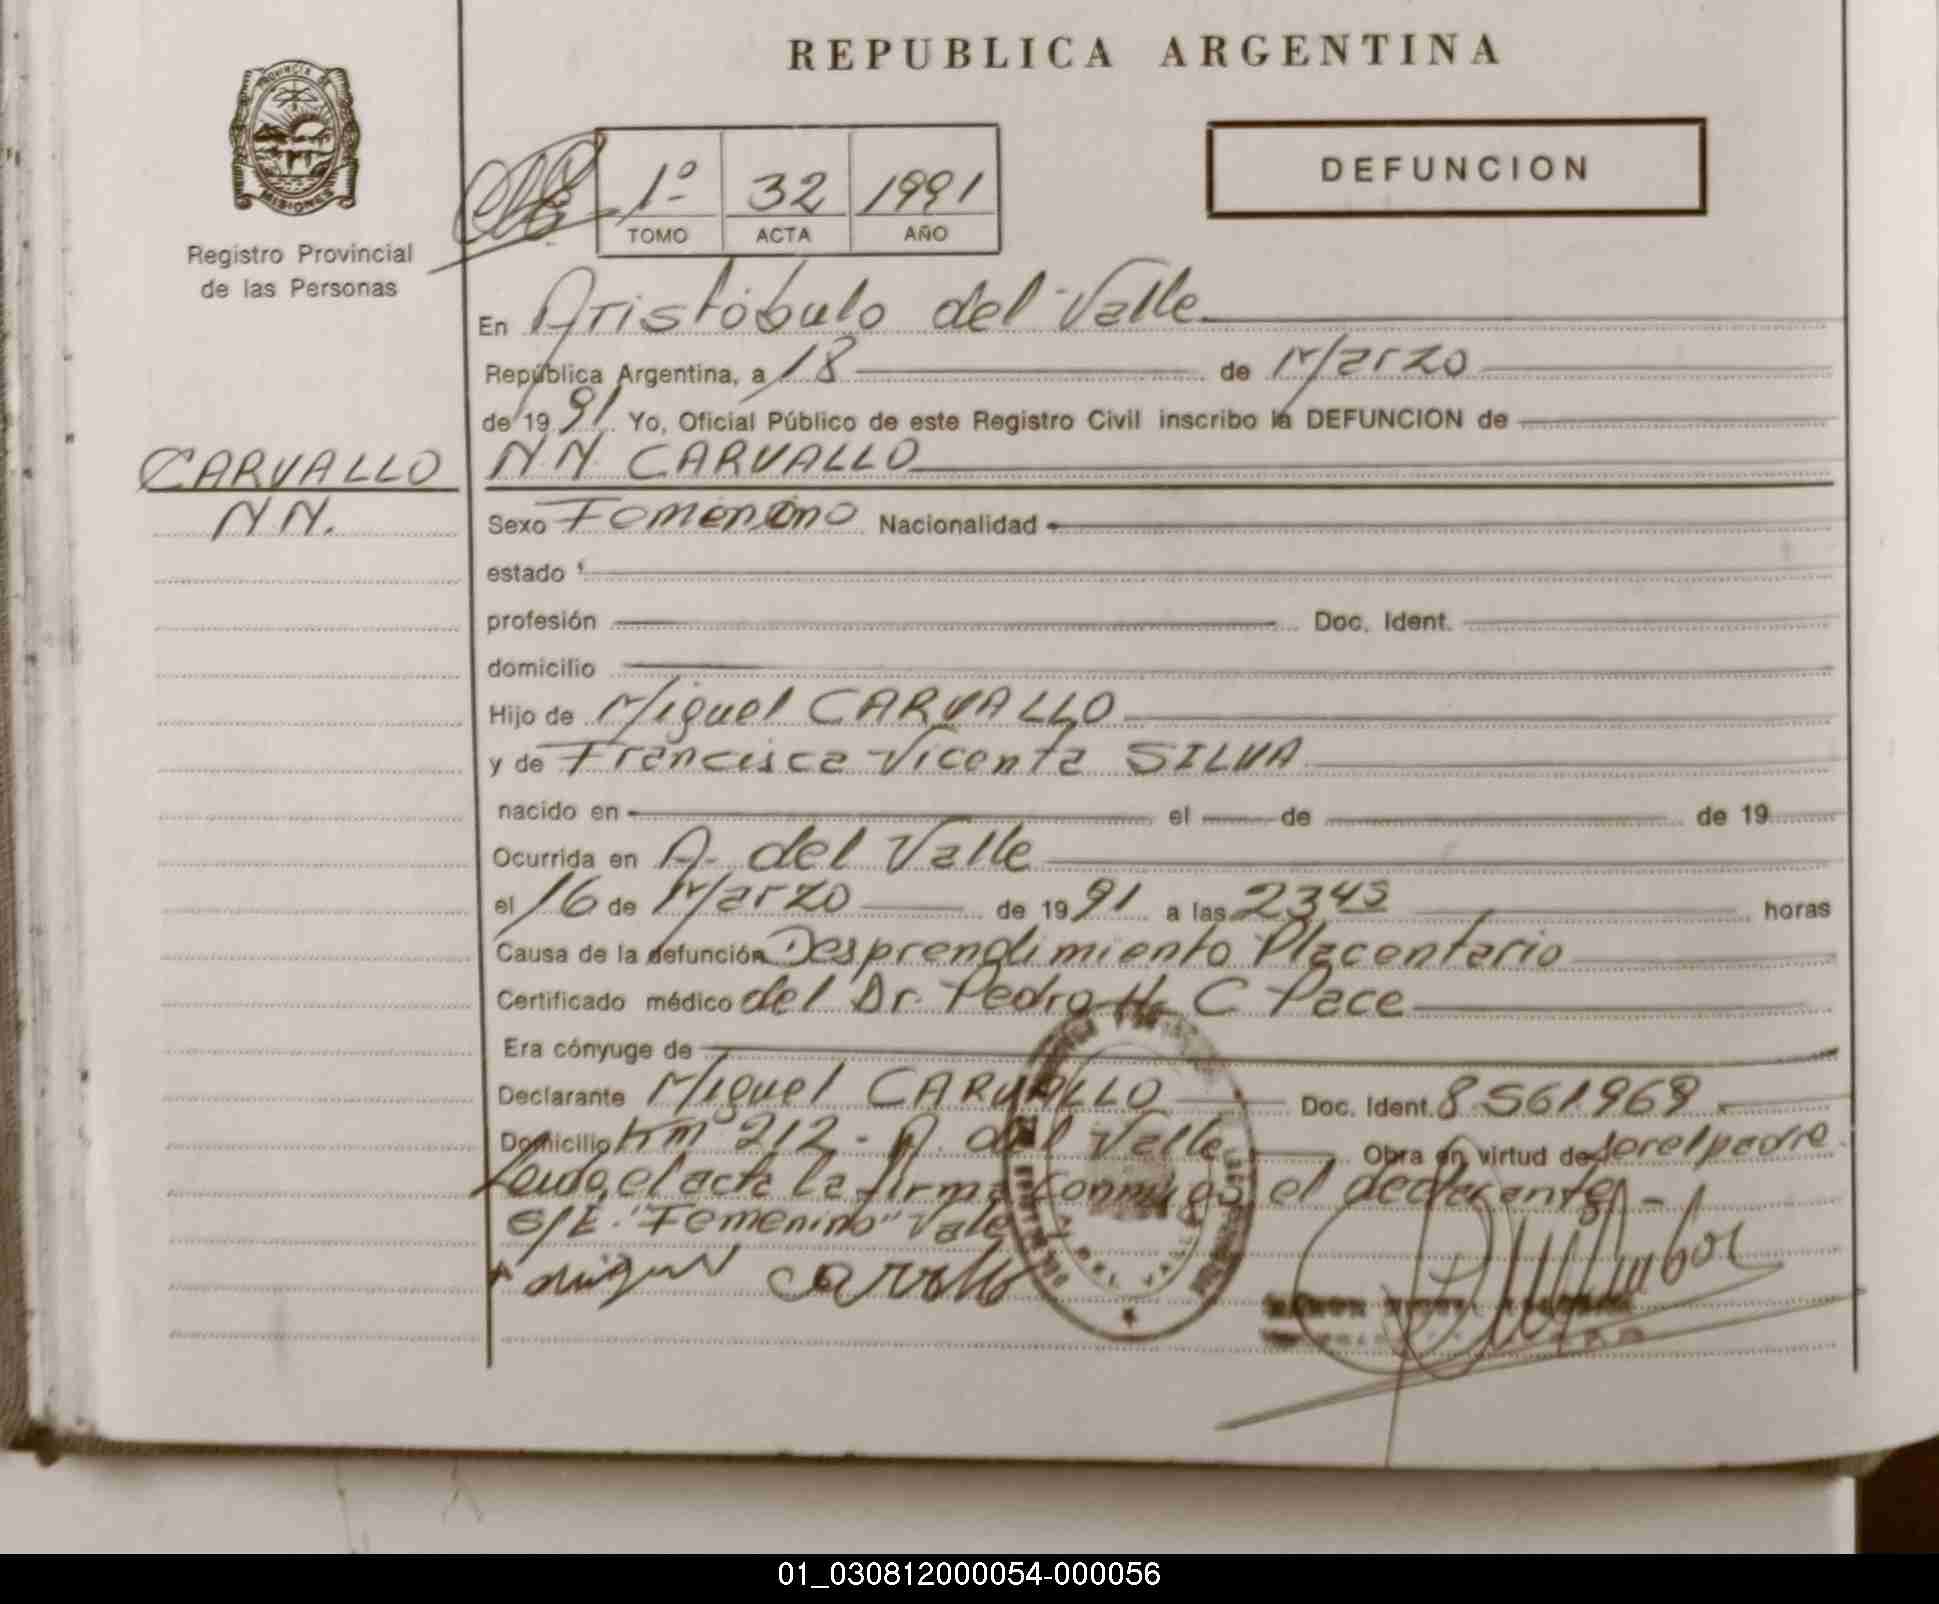 REPUBLICA ARGENTINA
PROVINCIA DE
MISIONES
Registro Provincial
de las Personas
1º 32 1991
TOMO ACTA AÑO
DEFUNCION
En Aristóbulo del Valle
República Argentina, a 18 de Marzo
de 19 91 Yo, Oficial Público de este Registro Civil inscribo la DEFUNCION de
CARVALLO
NN.
NN CARVALLO
Sexo Femenino Nacionalidad
estado
profesión Doc. Ident.
domicilio
Hijo de Miguel CARVALLO
y de Francisca Vicenta SILVA
nacido en el de de 19
Ocurrida en A. del Valle
el 16 de Marzo de 19 91 a las 2345 horas
Causa de la defunción Desprendimiento Placentario
Certificado médico del Dr. Pedro H. C Pace
Era cónyuge de
Declarante Miguel CARVALLO Doc. Ident. 8.561.968
Domicilio Km 212 - A. del Valle Obra en virtud de ser el padre
Leída el acta la firma conmigo el declarante -
S/E. "Femenino" Vale
Miguel Carvallo
01_030812000054-000056